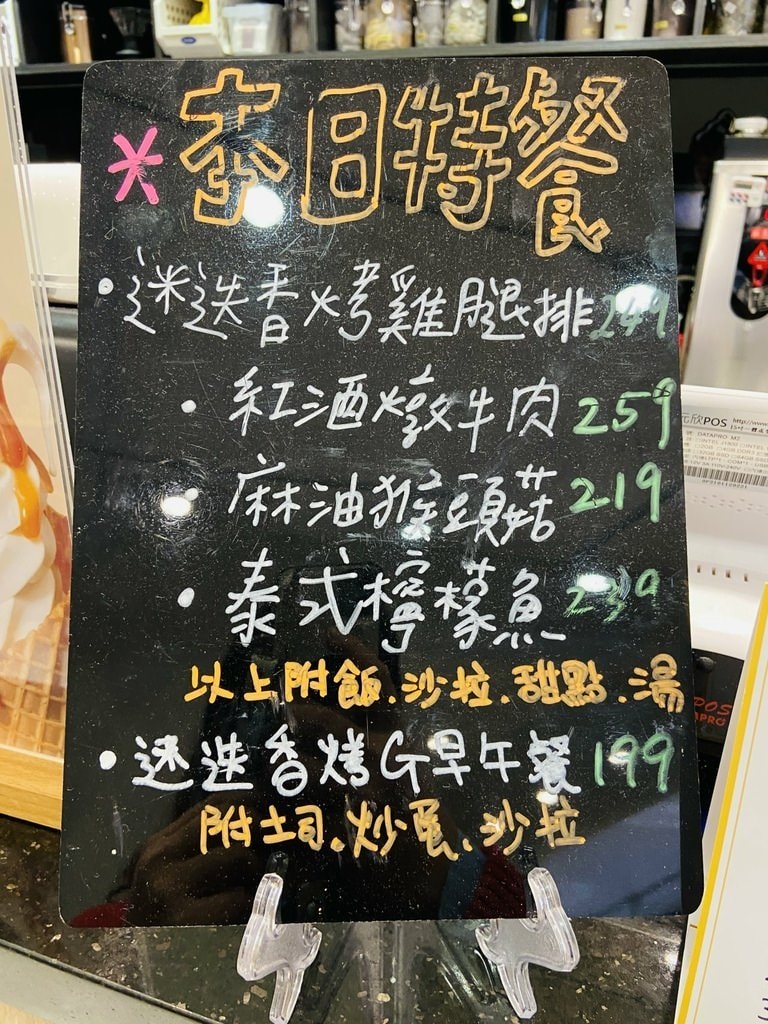 * 本日特餐
• 迷迭香烤雞腿排 249
• 紅酒燉牛肉 259
麻油猴頭菇 219
• 泰式檸檬魚 239
以上附飯.沙拉.甜點.湯
• 迷迭香烤G早午餐 199
附土司.炒蛋.沙拉
元欣POS http://www.